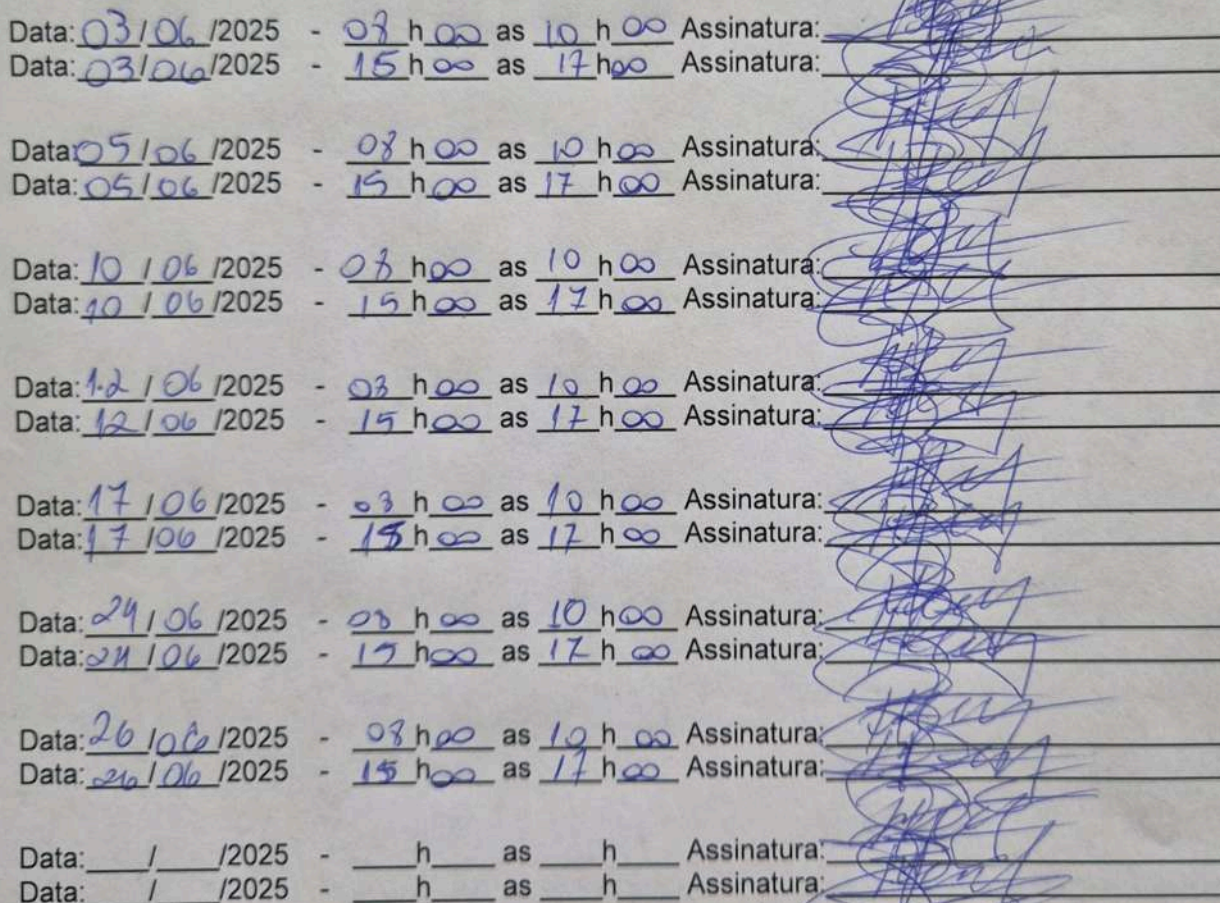 Data: 03/06/2025 - 08 h 00 as 10 h 00 Assinatura:
Data: 03/06/2025 - 15 h 00 as 17 h 00 Assinatura:
Data: 05/06/2025 - 08 h 00 as 10 h 00 Assinatura:
Data: 05/06/2025 - 15 h 00 as 17 h 00 Assinatura:
Data: 10/06/2025 - 08 h 00 as 10 h 00 Assinatura:
Data: 10/06/2025 - 15 h 00 as 17 h 00 Assinatura:
Data: 12/06/2025 - 08 h 00 as 10 h 00 Assinatura:
Data: 12/06/2025 - 15 h 00 as 17 h 00 Assinatura:
Data: 17/06/2025 - 08 h 00 as 10 h 00 Assinatura:
Data: 17/06/2025 - 15 h 00 as 17 h 00 Assinatura:
Data: 24/06/2025 - 08 h 00 as 10 h 00 Assinatura:
Data: 24/06/2025 - 15 h 00 as 17 h 00 Assinatura:
Data: 26/06/2025 - 08 h 00 as 10 h 00 Assinatura:
Data: 26/06/2025 - 15 h 00 as 17 h 00 Assinatura:
Data:____/____/2025 - ____h____ as ____h____ Assinatura:
Data:____/____/2025 - ____h____ as ____h____ Assinatura: